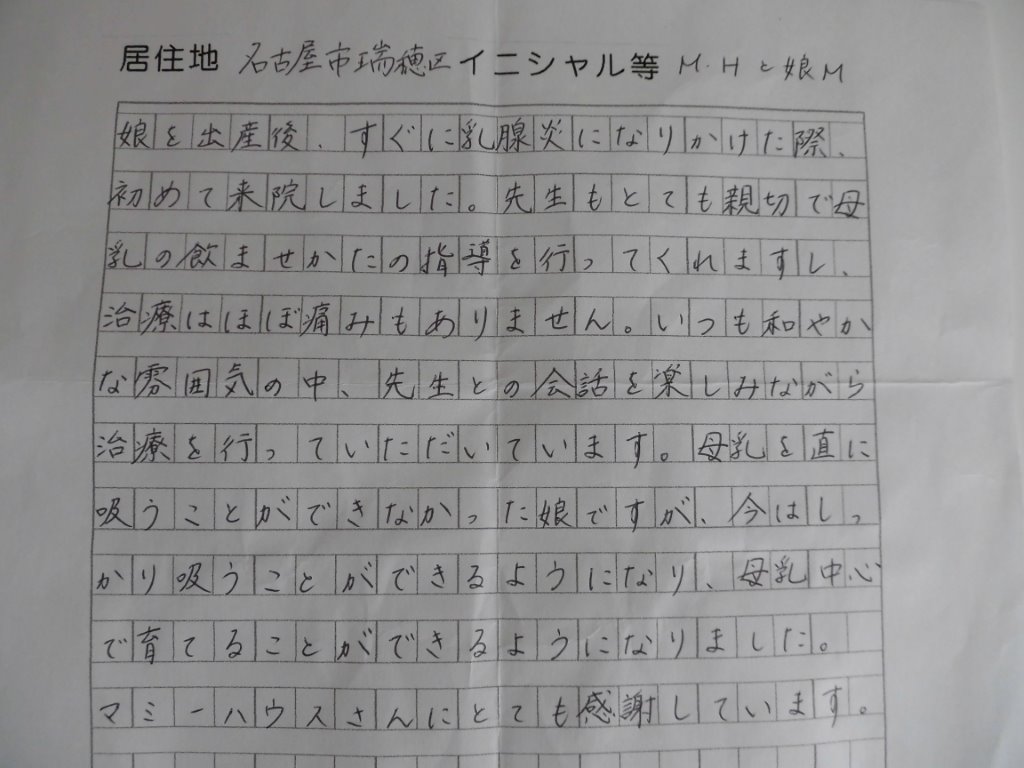 居住地 名古屋市瑞穂区 イニシャル等 M.Hと娘M
娘を出産後、すぐに乳腺炎になりかけた際、
初めて来院しました。先生もとても親切で母
乳の飲ませかたの指導を行ってくれますし、
治療はほぼ痛みもありません。いつも和やか
な雰囲気の中、先生との会話を楽しみながら
治療を行っていただいています。母乳を直に
吸うことができなかった娘ですが、今はしっ
かり吸うことができるようになり、母乳中心
で育てることができるようになりました。
マミーハウスさんにとても感謝しています。